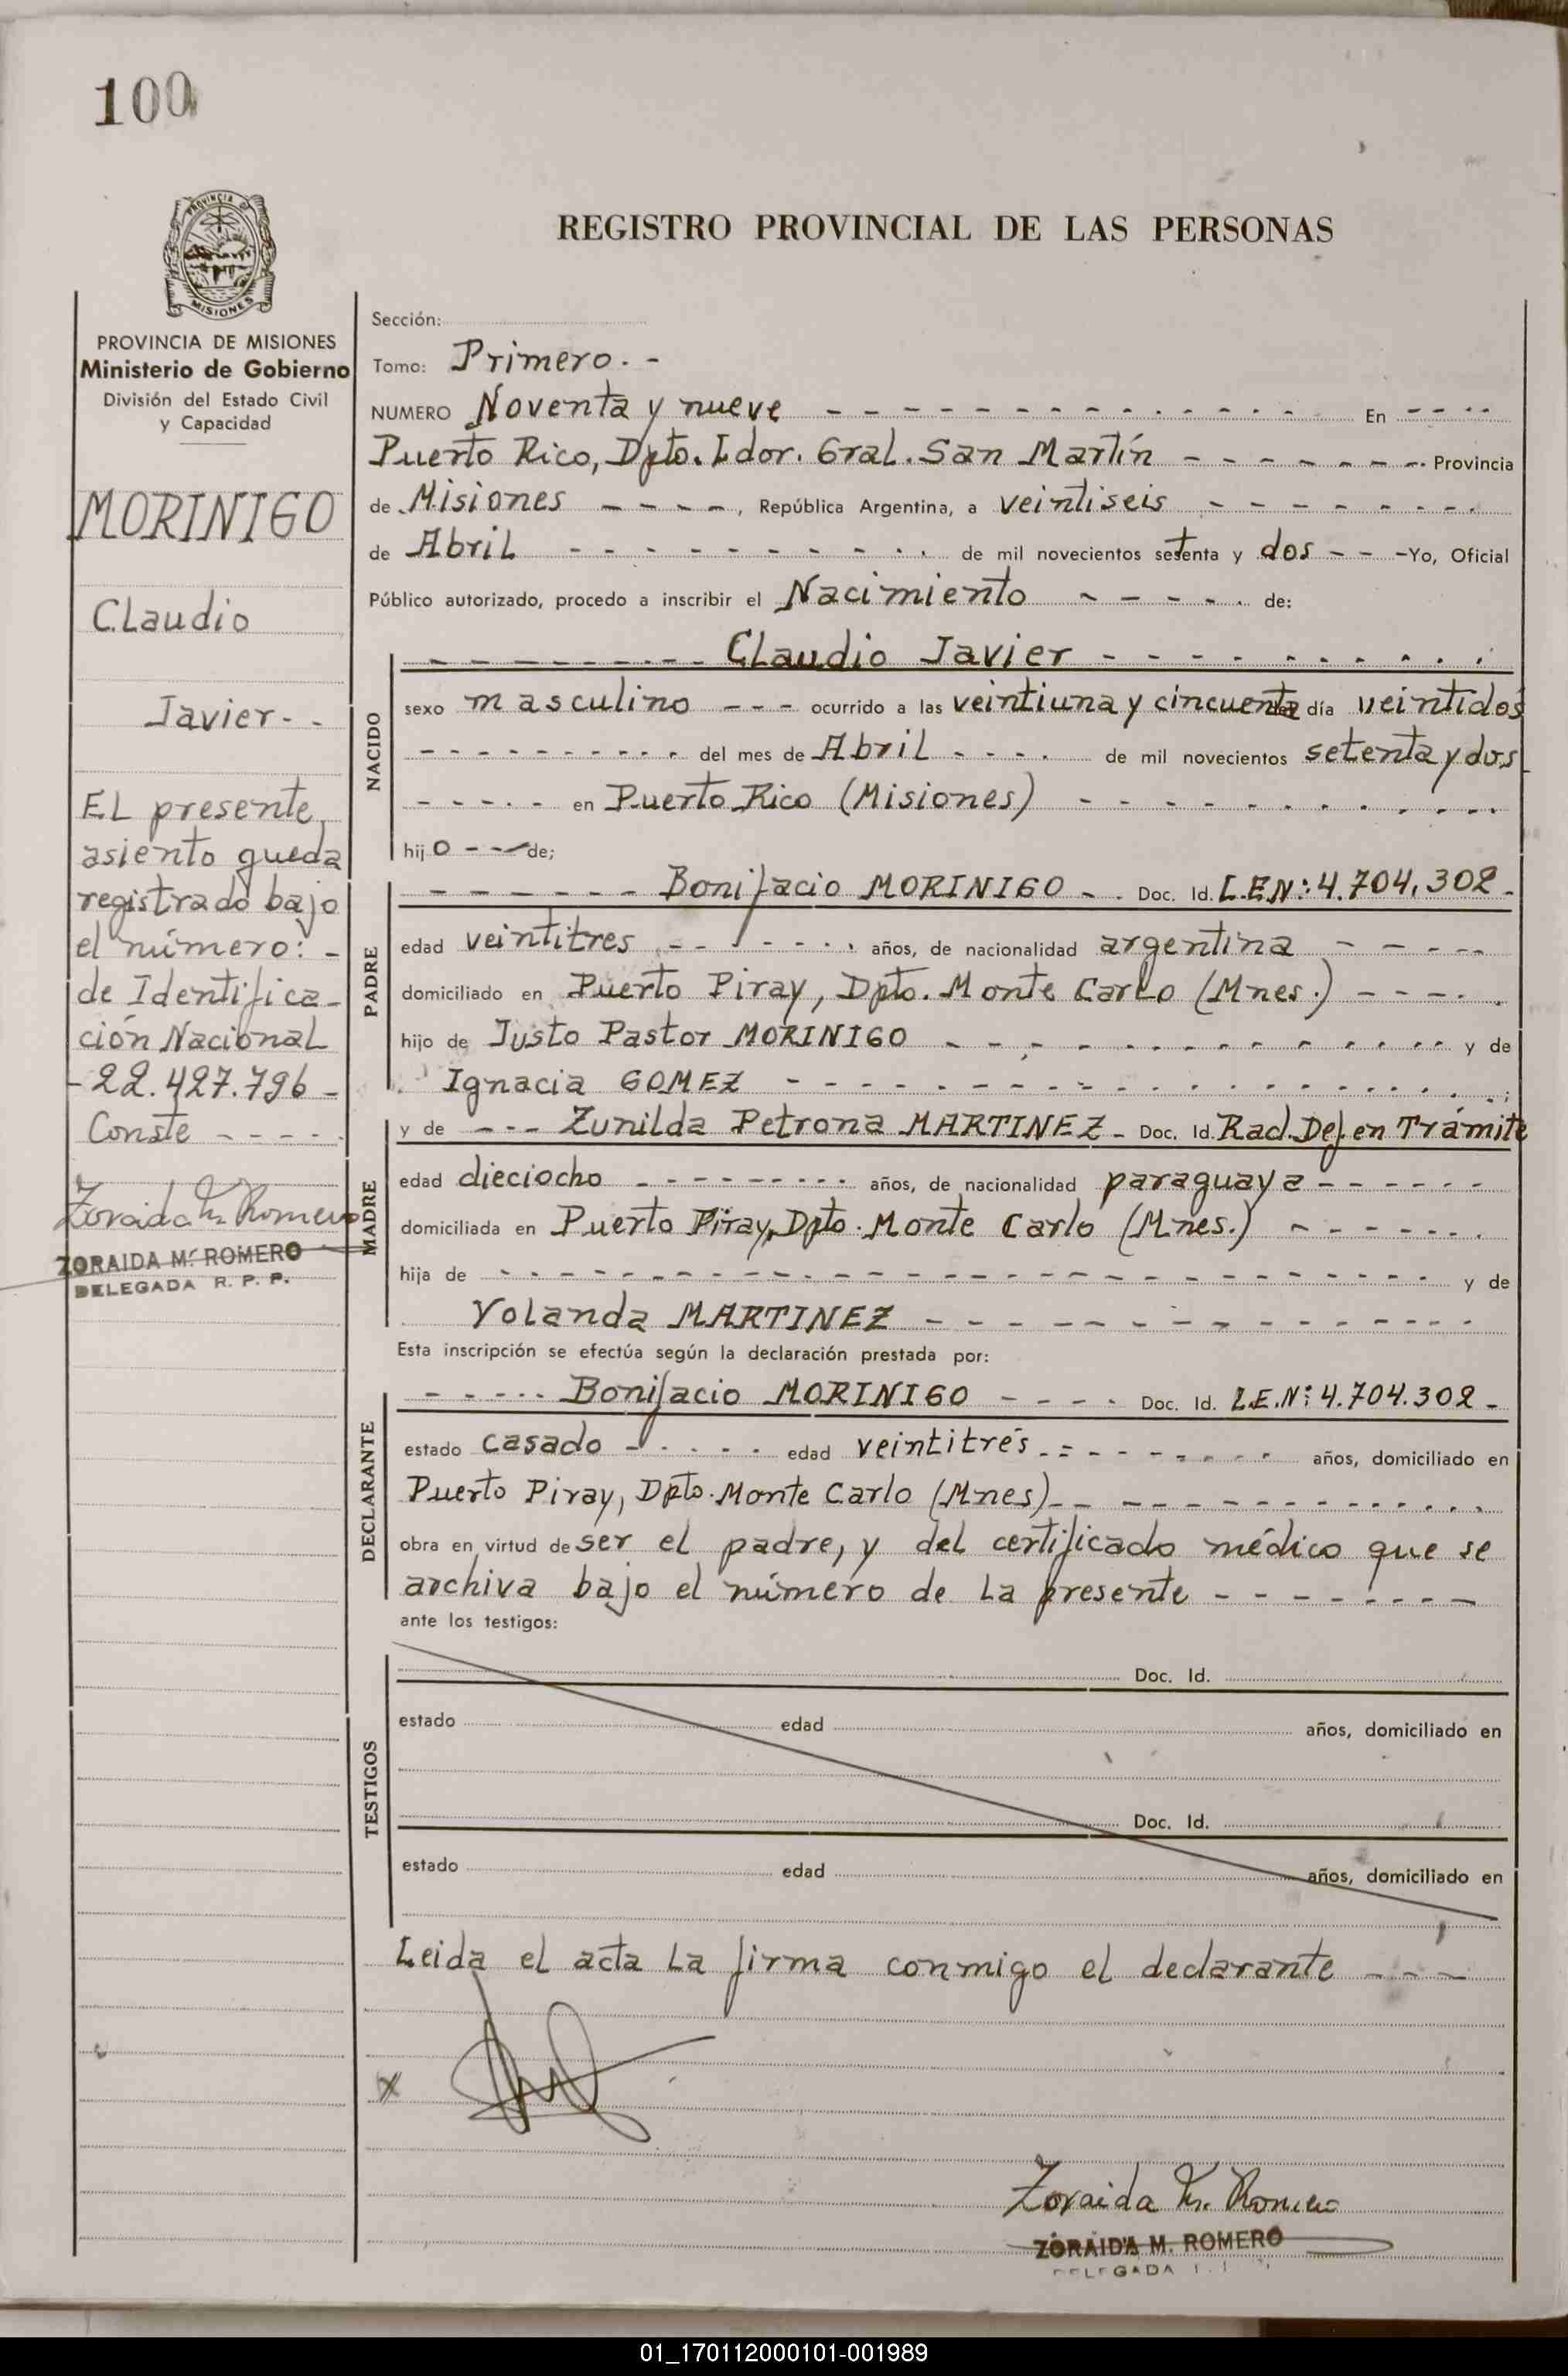 100
PROVINCIA DE
MISIONES
REGISTRO PROVINCIAL DE LAS PERSONAS
PROVINCIA DE MISIONES
Ministerio de Gobierno
División del Estado Civil
y Capacidad
MORINIGO
Claudio
Javier - -
El presente
asiento queda
registrado bajo
el número: -
de Identifica-
ción Nacional
- 22.427.796 -
Conste - - - -
Zoraida M. Romero
ZORAIDA M. ROMERO
DELEGADA R. P. P.
Sección:
Tomo: Primero. -
NUMERO Noventa y nueve - - - - En - - - -
Puerto Rico, Dpto. Ldor. Gral. San Martín - - - - Provincia
de Misiones - - - -, República Argentina, a veintiseis - - - -
de Abril - - - - de mil novecientos setenta y dos - - - Yo, Oficial
Público autorizado, procedo a inscribir el Nacimiento - - - - de:
NACIDO
- - - - Claudio Javier - - - -
sexo masculino - - - ocurrido a las veintiuna y cincuenta día veintidos
- - - - del mes de Abril - - - - de mil novecientos setenta y dos
- - - - en Puerto Rico (Misiones) - - - -
hijo - - - de;
PADRE
- - - - Bonifacio MORINIGO - - Doc. Id. L.E.N: 4.704.302 -
edad veintitres - - - - años, de nacionalidad argentina - - - -
domiciliado en Puerto Piray, Dpto. Monte Carlo (Mnes.) - - - -
hijo de Justo Pastor MORINIGO - - - - y de
Ignacia GOMEZ - - - - ;
MADRE
y de - - - Zunilda Petrona MARTINEZ - Doc. Id. Rad. Def. en Trámite
edad dieciocho - - - - años, de nacionalidad paraguaya - - - -
domiciliada en Puerto Piray, Dpto. Monte Carlo (Mnes.) - - - -
hija de - - - - y de
Yolanda MARTINEZ - - - -
Esta inscripción se efectúa según la declaración prestada por:
DECLARANTE
- - - - Bonifacio MORINIGO - - - - Doc. Id. L.E.N: 4.704.302 -
estado casado - - - - edad veintitrés - - - - años, domiciliado en
Puerto Piray, Dpto. Monte Carlo (Mnes) - - - -
obra en virtud de ser el padre, y del certificado médico que se
archiva bajo el número de la presente - - - -
ante los testigos:
TESTIGOS
Doc. Id.
estado edad años, domiciliado en
Doc. Id.
estado edad años, domiciliado en
Leida el acta la firma conmigo el declarante - - -
x
Zoraida M. Romero
ZORAIDA M. ROMERO
DELEGADA
01_170112000101-001989